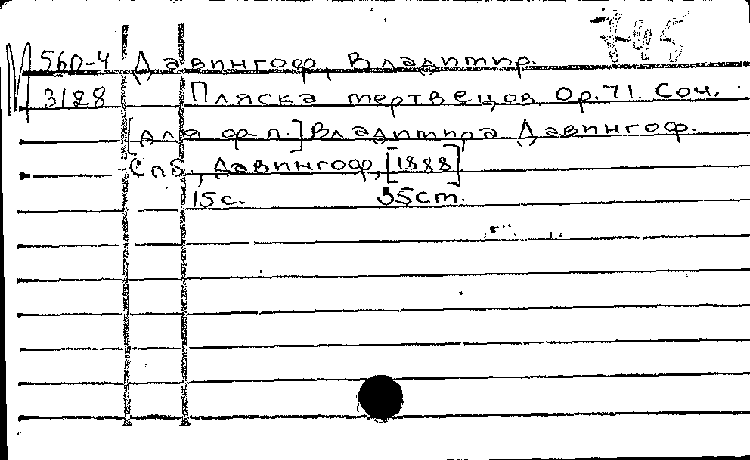 745
М 56П-4 Давингоф, Владимир.
3/88 Пляска мертвецов Op. 71 Соч.
[для ф-п.] Владимира Давингоф.
Спб, Давингоф, [1888]
15с. 35cm.